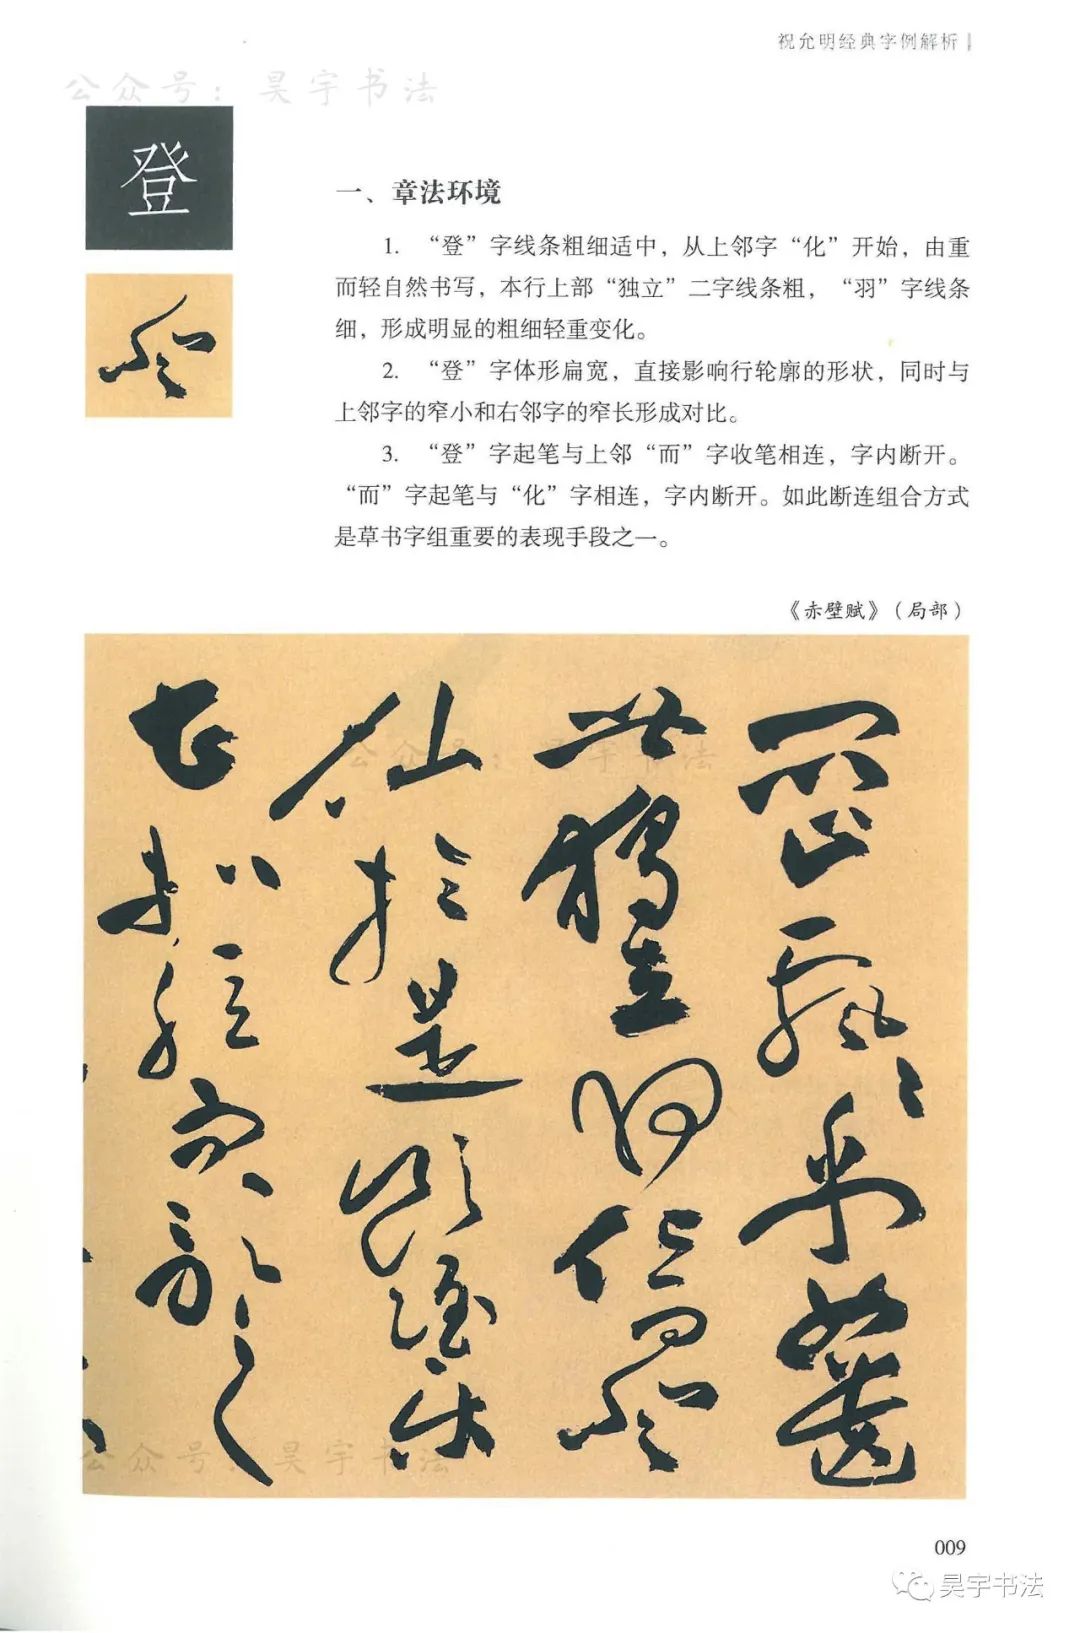 祝允明经典字例解析
公众号：昊宇书法
登
登
一、章法环境
1. “登”字线条粗细适中，从上邻字“化”开始，由重
而轻自然书写，本行上部“独立”二字线条粗，“羽”字线条
细，形成明显的粗细轻重变化。
2. “登”字体形扁宽，直接影响行轮廓的形状，同时与
上邻字的窄小和右邻字的窄长形成对比。
3. “登”字起笔与上邻“而”字收笔相连，字内断开。
“而”字起笔与“化”字相连，字内断开。如此断连组合方式
是草书字组重要的表现手段之一。
《赤壁赋》（局部）
所止飄〻乎如遺
世獨立羽化而登
仙於是飲酒樂
甚扣舷而歌之
公众号：昊宇书法
公众号：昊宇书法
009
昊宇书法